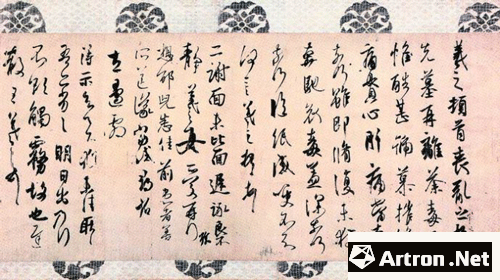 羲之頓首喪亂之極
先墓再離荼毒追
惟酷甚號慕摧
痛貫心肝痛當奈
奈何雖即脩復未獲
奔馳哀毒益深奈
奈何臨紙感哽不知
何言羲之頓首
二謝面未比面遲詠良
靜羲之女愛再拜
想邵兒悉佳前患者善
左邊劇
得示知足下猶未佳耿
吾亦劣劣明日出乃行
不欲觸霧故也遲
散王羲之頓首
Artron.Net